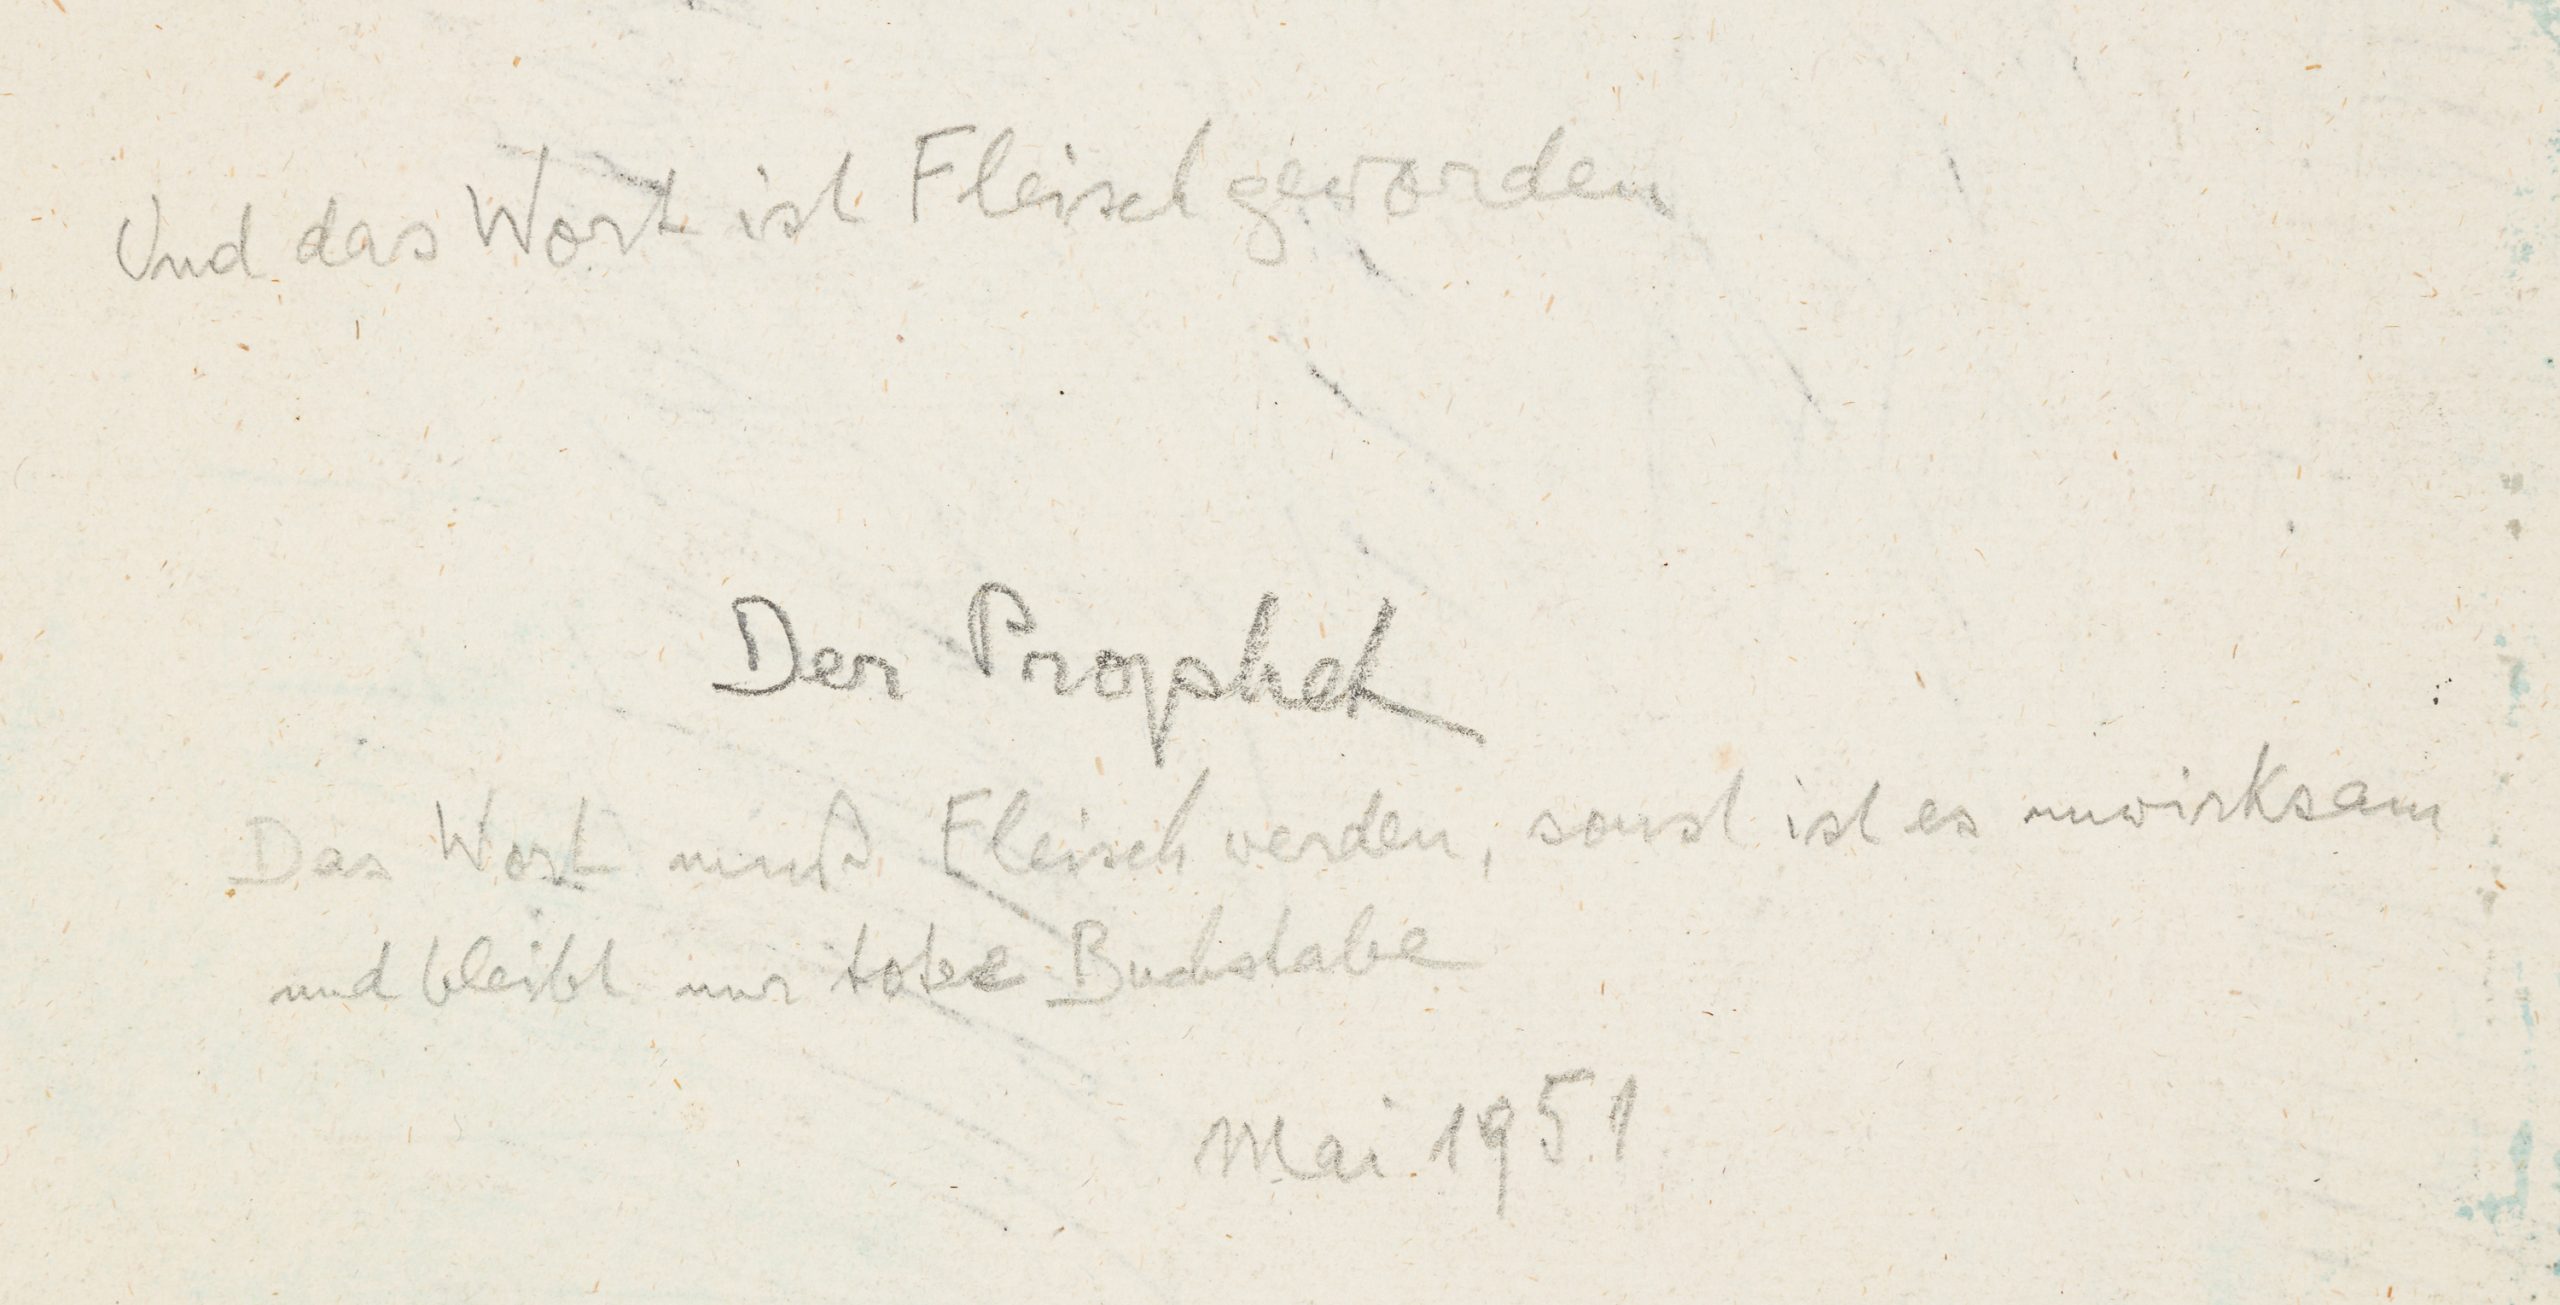 Und das Wort ist Fleisch geworden
Der Prophet
Das Wort muß Fleisch werden, sonst ist es unwirksam
und bleibt nur tote Buchstabe
Mai 1951